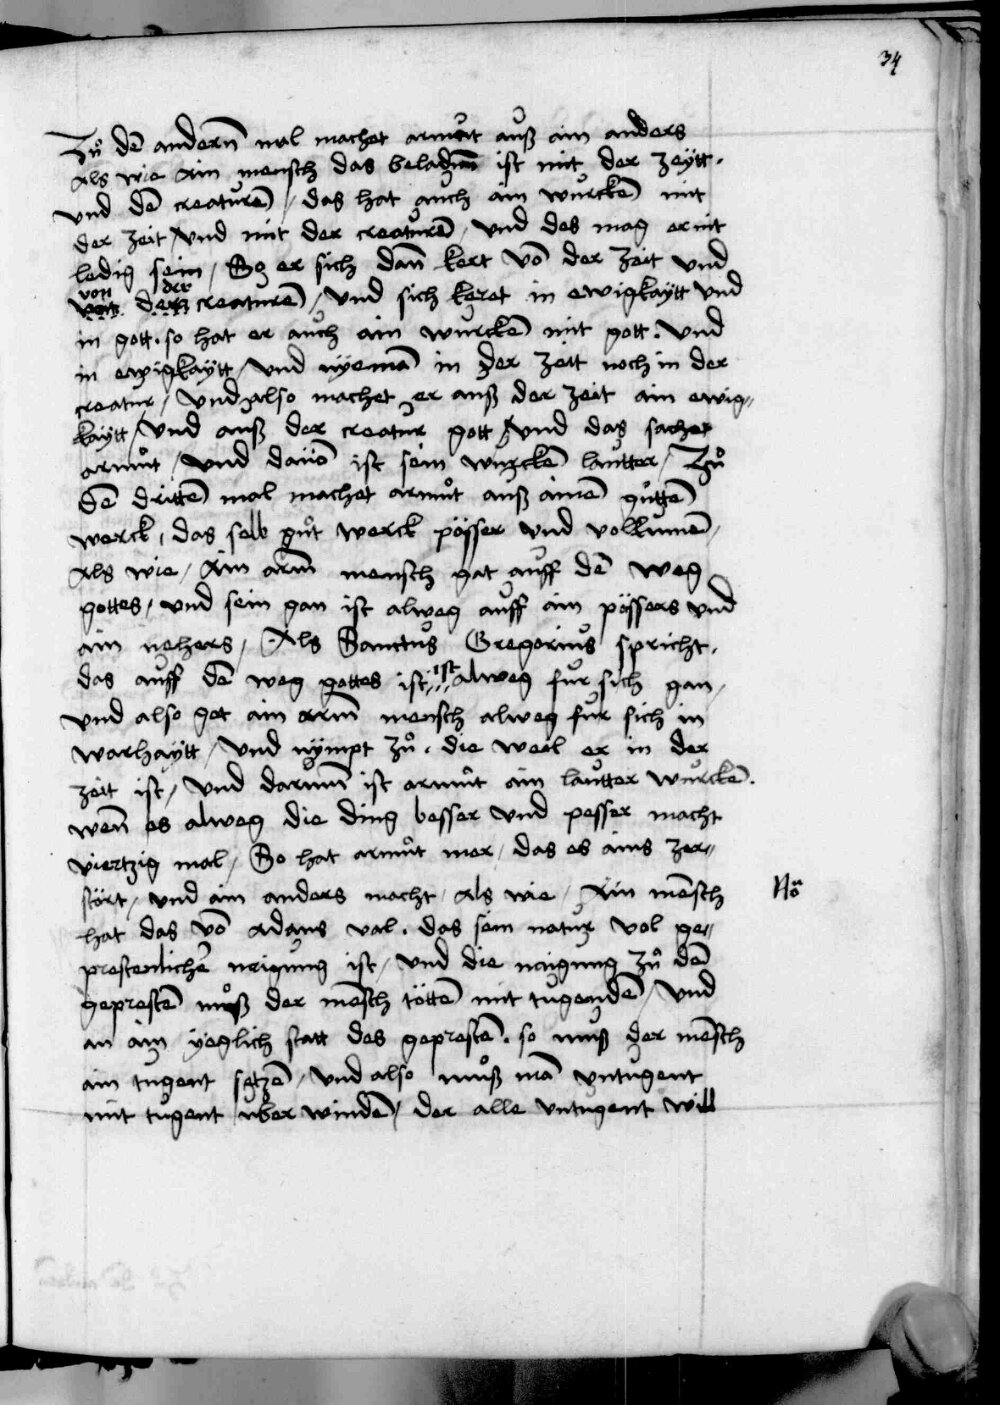 34
Zů dē andern̄ mal machet armůt auß ain anders
Als wie Ain mensch das beladenn ist mit der zeÿtt.
vnd dē creaturē / das hat auch ain wurckē mit
der zeit / vnd mit der creaturē / vnd des mag er nit
ledig sein / So er sich dan̄ kert vō der zeit vnd
von der
von den creaturē / vnd sich keret in ewigkaÿtt vnd
in gott. so hat er auch ain wurckē mit gott. vnd
in ewigkaÿtt / vnd nÿemā in der zeitt noch in der
creatur / vnd also machet er auß der zeit ain ewig„
kaÿtt / vnd auß der creatur gott / vnd das sachet
armůt / vnd dauō ist sein wurckē lautter / Zů
dē drittē mal machet armůt auß ainē gůttē
werck / das selb gůt werck pösser vnd volkumē /
Als wie / Ain arm̄ mensch gat auff dē weg
gottes / vnd sein gan ist alweg auff ain pössers vnd
ain nehers / Als Sanctus Gregorius spricht.
das auff dē weg gottes ist ist alweg fur sich gan /
vnd also get ain arm̄ mensch alweg fur sich in
warhaÿtt / vnd nÿmpt zů. die weil er in der
zeit ist / vnd darum̄ ist armůt ain lautter wurckē.
wen̄ es alweg die ding besser vnd pesser macht
viertzig mal / So hat armůt mer / das es ains zer„
stört / vnd ain anders macht / Als wie / Ain mēsch
Nō
hat das vō adams val. das sein natur vol ge„
prestenlichē neigung ist / vnd die naigung zů dē
geprestē můß der mēsch töttē mit tugendē / vnd
an ain ÿeglich statt des geprestē. so muß der mēsch
ain tugent setzē / vnd also můß mā vntugent
mit tugent vber windē / der alle vntugent will